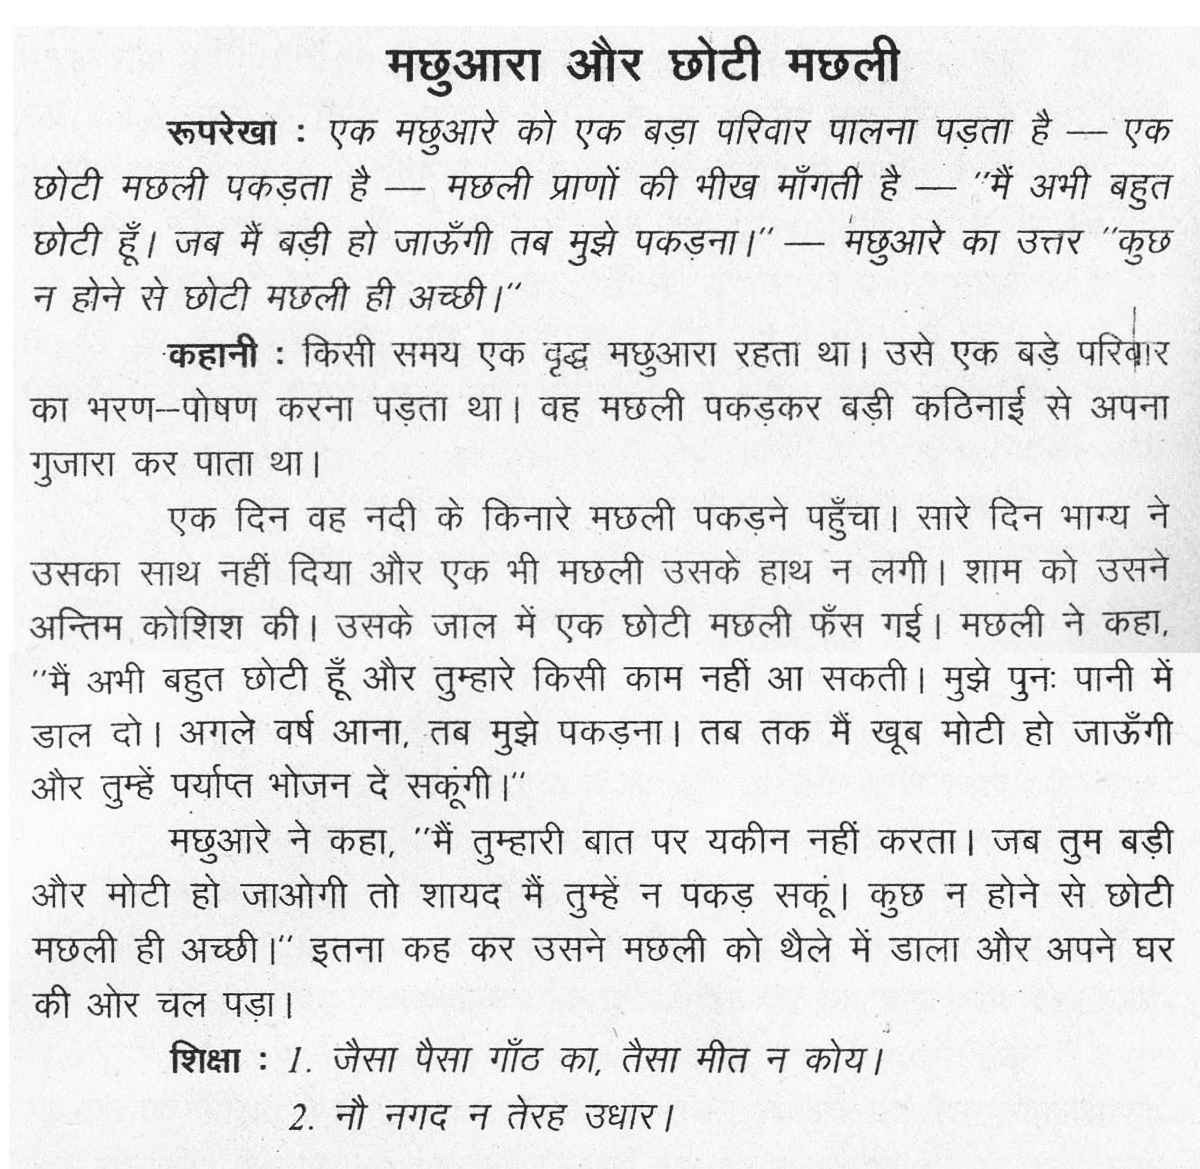 मछुआरा और छोटी मछली
रूपरेखा : एक मछुआरे को एक बड़ा परिवार पालना पड़ता है — एक
छोटी मछली पकड़ता है — मछली प्राणों की भीख माँगती है — "मैं अभी बहुत
छोटी हूँ। जब मैं बड़ी हो जाऊँगी तब मुझे पकड़ना।" — मछुआरे का उत्तर "कुछ
न होने से छोटी मछली ही अच्छी।"
कहानी : किसी समय एक वृद्ध मछुआरा रहता था। उसे एक बड़े परिवार
का भरण–पोषण करना पड़ता था। वह मछली पकड़कर बड़ी कठिनाई से अपना
गुजारा कर पाता था।
एक दिन वह नदी के किनारे मछली पकड़ने पहुँचा। सारे दिन भाग्य ने
उसका साथ नहीं दिया और एक भी मछली उसके हाथ न लगी। शाम को उसने
अन्तिम कोशिश की। उसके जाल में एक छोटी मछली फँस गई। मछली ने कहा,
"मैं अभी बहुत छोटी हूँ और तुम्हारे किसी काम नहीं आ सकती। मुझे पुनः पानी में
डाल दो। अगले वर्ष आना, तब मुझे पकड़ना। तब तक मैं खूब मोटी हो जाऊँगी
और तुम्हें पर्याप्त भोजन दे सकूंगी।"
मछुआरे ने कहा, "मैं तुम्हारी बात पर यकीन नहीं करता। जब तुम बड़ी
और मोटी हो जाओगी तो शायद मैं तुम्हें न पकड़ सकूं। कुछ न होने से छोटी
मछली ही अच्छी।" इतना कह कर उसने मछली को थैले में डाला और अपने घर
की ओर चल पड़ा।
शिक्षा : 1. जैसा पैसा गाँठ का, तैसा मीत न कोय।
2. नौ नगद न तेरह उधार।